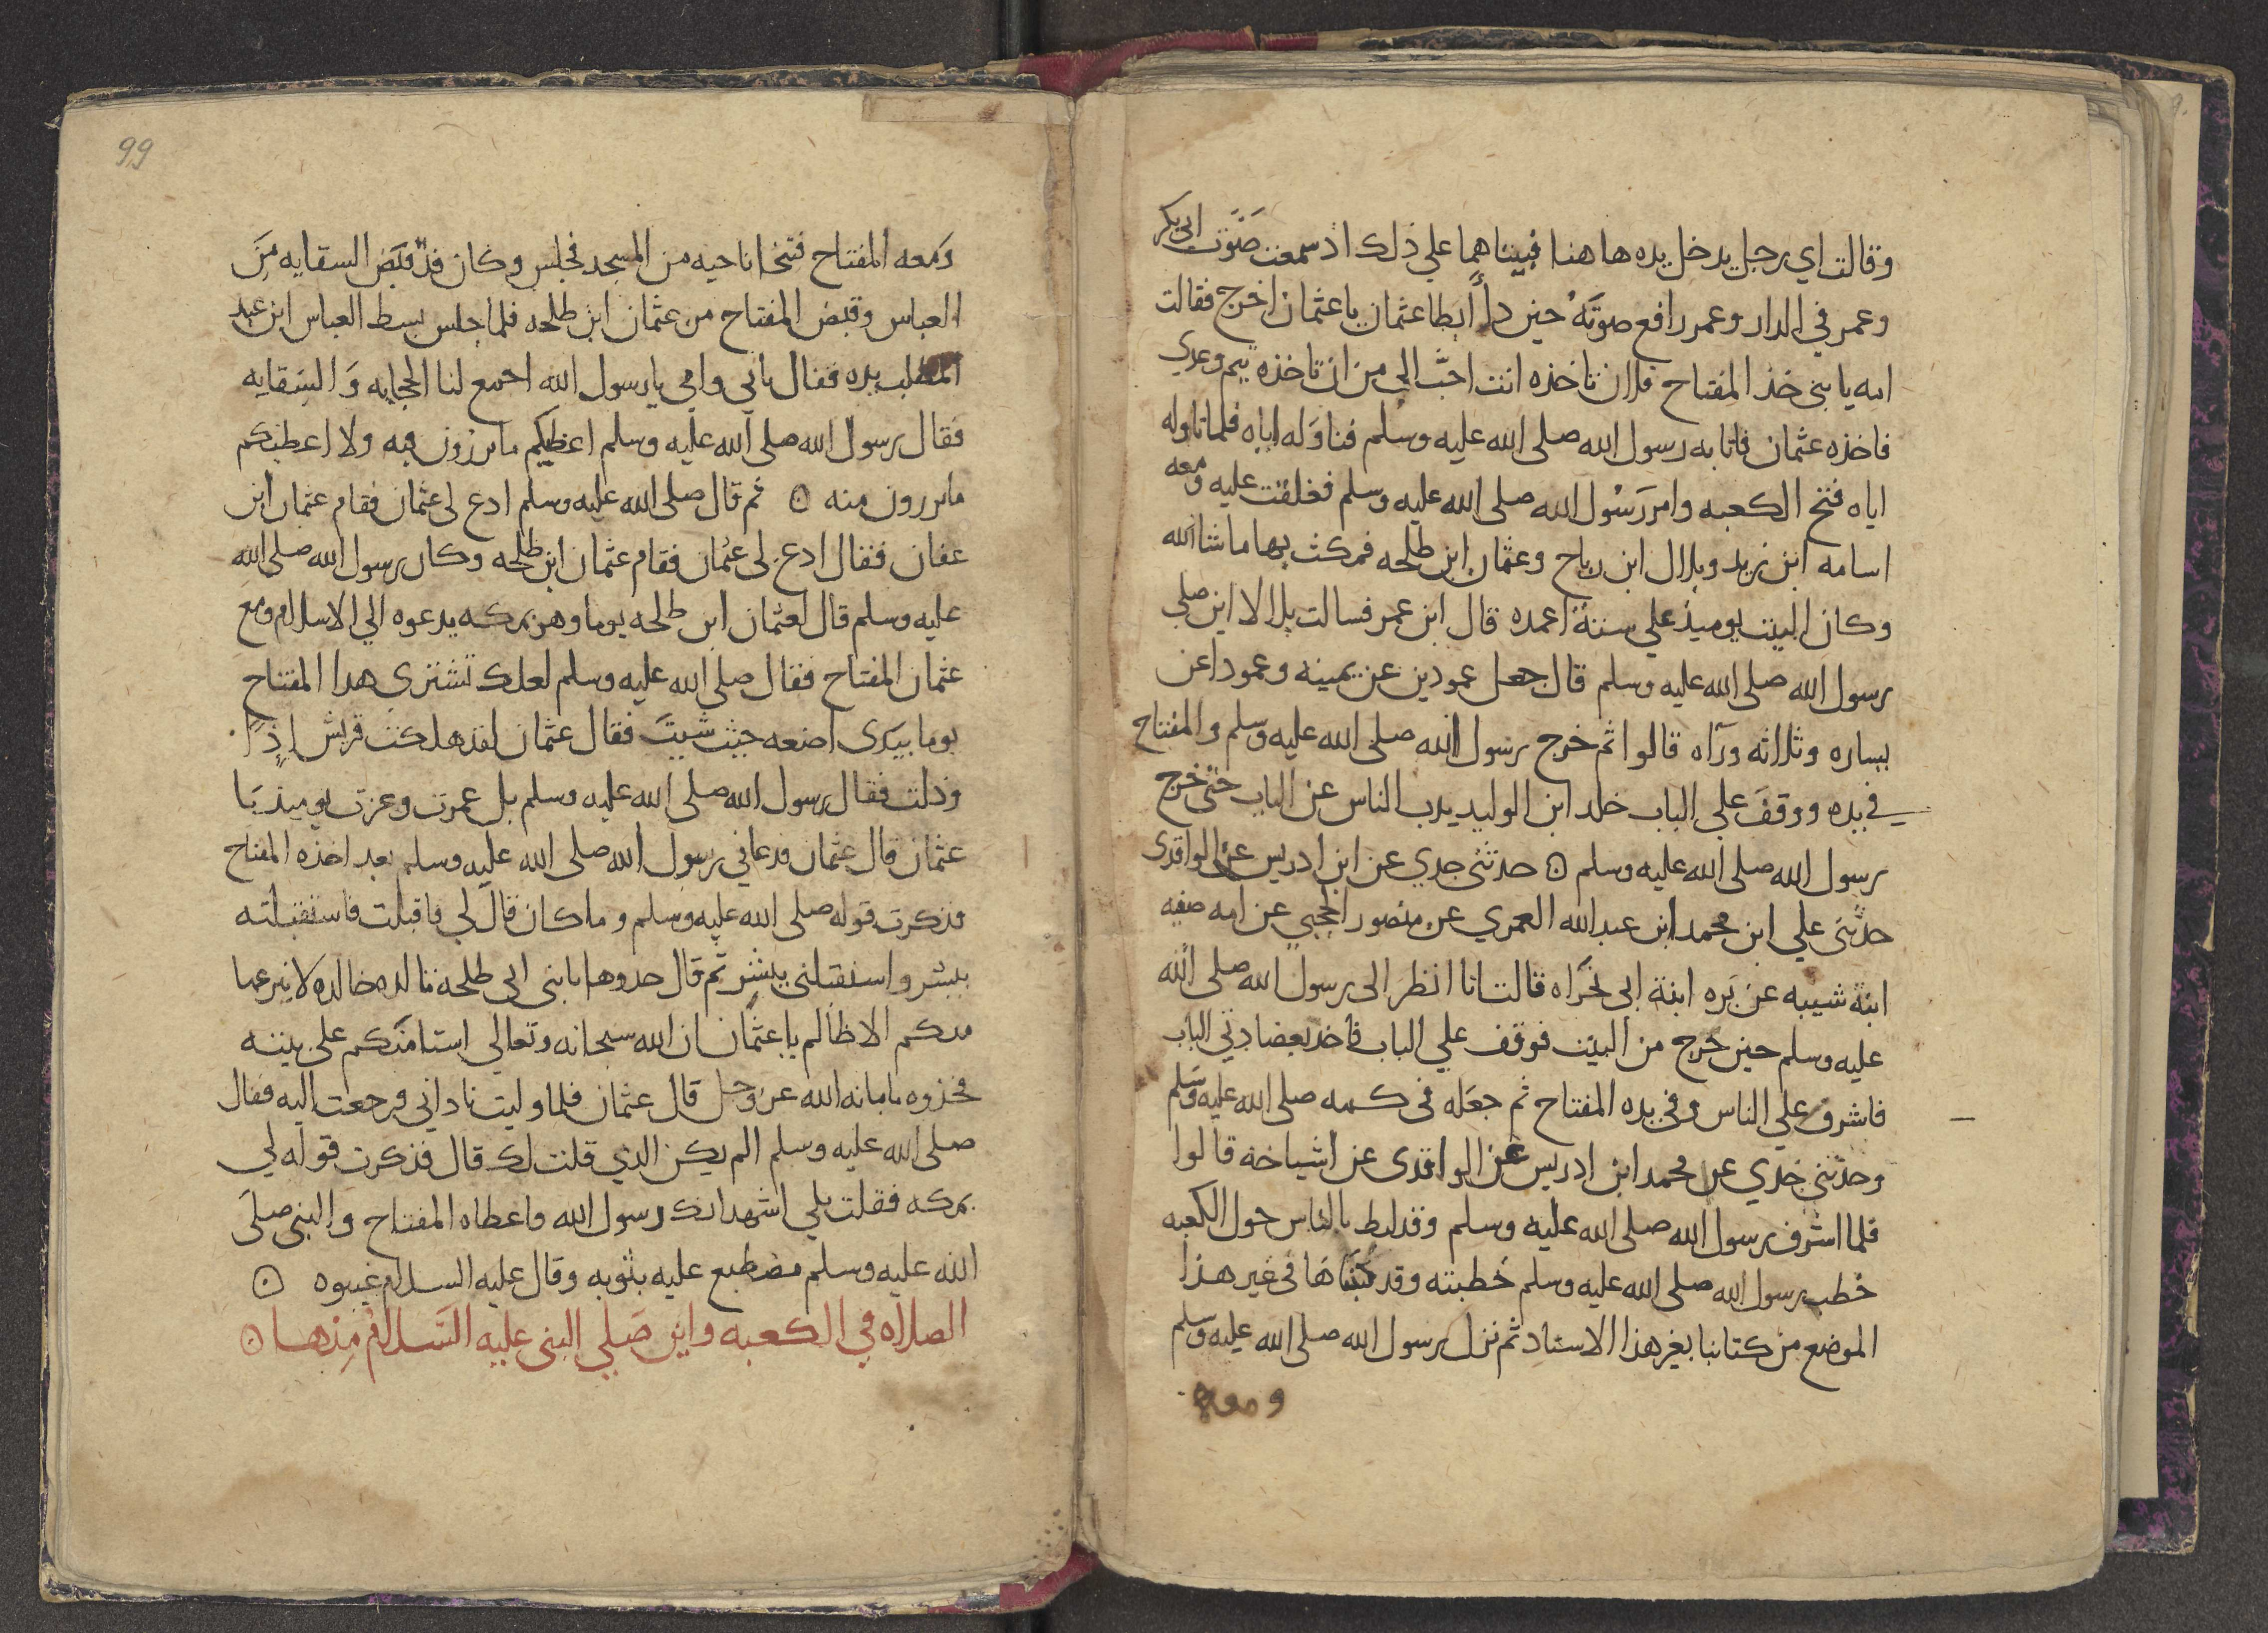 وقالت اي رجل يدخل يده هاهنا فبيناهما علي ذلك اذ سمعت صَوَت ابي بكر
وعمر في الدار وعمر رافع صوتَهُ حين راٌ ابطا عثمان يا عثمان اخرج فقالت
امه يا بني خذ المفتاح فلان تاخذه انت احبّ الي من ان تاخذه تيم وعدي
فاخذه عثمان فاتا به رسول الله صلى الله عليه وسلم فناوَله اياه فلما ناوله
اياه فتح الكعبه وامر رَسُول الله صلى الله عليه وسلم فغلقت عليه ومعه
اسامه ابن زيد وبلال ابن رباح وعثمان ابن طلحه فمكث بها ما شا الله
وكان البيت يوميذ علي ستة اعمده قال ابن عمر فسالت بلالا اين صلي
رسول الله صلى الله عليه وسلم قال جعل عمودين عن يمينه وعمودا عن
يساره وثلاثه ورآه قالوا ثم خرج رسول الله صلى الله عليه وسلم والمفتاح
في يده ووقفَ علي الباب خلد ابن الوليد يدب الناس عن الباب حتى خرج
رسول الله صلى الله عليه وسلم ۞ حدثني جدي عن ابن ادريس عن الواقدى
حدثني علي ابن محمد ابن عبد الله العمري عن منصور الحجبي عن امه صفيه
ابنة شيبه عن بَره ابنة ابي تجَراه قالت انا انظر الى رسول الله صلى الله
عليه وسلم حين خرج من البيت فوقف علي الباب فاخذ بعضادتي الباب
فاشرف علي الناس وفي يده المفتاح ثم جعَله في كمه صلى الله عليه وسَلم
وحدثني جدي عن محمد ابن ادريس عن الواقدى عن اشياخه قالوا
فلما اشرف رسول الله صلى الله عليه وسلم وقد ليط بالناس حول الكعبه
خطب رسول الله صلى الله عليه وسلم خطبته وقد كتبناها في غير هذا
الموضع من كتابنا بغير هذا الاسناد ثم نزل رسول الله صلى الله عليه وسلم
ومعه
99
وَمعه المفتاح فتنحا ناحيه من المسجد فجلس وكان قد قبَض السقايه مِنَ
العباس وقبض المفتاح من عثمان ابن طلحه فلما جلس بسط العباس ابن عبد
المطلب يده فقال بابي وامي يا رسول الله اجمع لنا الحجابه وَ السِقايه
فقال رسول الله صلى الله عليه وسلم اعطيكم ما ترزون فيه ولا اعطيكم
ما ترزون منه ۞ ثم قال صلى الله عليه وسلم ادع لى عثمان فقام عثمان ابن
عفان فقال ادع لى عثمان فقام عثمان ابن طلحه وكان رسول الله صلى الله
عليه وسلم قال لعثمان ابن طلحه يوما وهو بمكه يدعوه الي الاسلام ومع
عثمان المفتاح فقال صلى الله عليه وسلم لعلك تشترى هدا المفتاح
يوما بيَدى اضعه حيث شيتَ فقال عثمان لقد هلكت قريش اذًا
وذلت فقال رسول الله صلى الله عليه وسلم بل عمرت وعزت يوميذ يَا
عثمان قال عثمان فدعاني رسول الله صلى الله عليه وسلم بعد اخذه المفتاح
فذكرت قوله صلى الله عليه وسلم وما كان قال لي فاقبلت فاستقبلته
ببشر واستقبلني ببشر ثم قال خدوها يا بني ابي طلحه تالده خالده لا ينزعها
منكم الا ظالم يا عثمان ان الله سبحانه وتعالي استامنكم على بيته
فخذوه بامانه الله عز وجل قال عثمان فلما وليت ناداني فرجعت اليه فقال
صلى الله عليه وسلم الم يكن الدي قلت لك قال فذكرت قوله لي
بمكه فقلت بلي اشهد انك رسول الله فاعطاه المفتاح والنبي صلى
الله عليه وسلم مضطبع عليه بثوبه وقال عليه السلام غيبوه ۞
الصلاه في الكعبه واين صَلي النبي عليه السَلام منها ۞